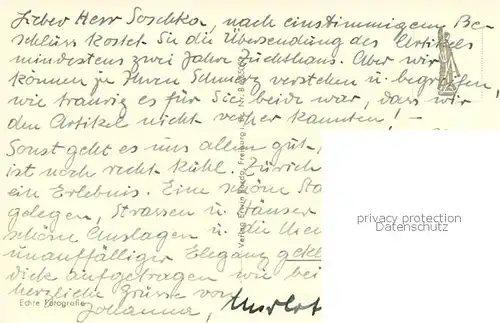 Lieber Herr Soschka, nach einstimmigem Be-
schluss kostet Sie die Übersendung des Artikels
mindestens zwei Jahre Zuchthaus. Aber wir
können ja Ihren Schmerz verstehen u. begreifen,
wie traurig es für Sie beide war, dass wir
den Artikel nicht vorher kannten! –
Sonst geht es uns allen gut,
ist noch recht kühl. Zürich
ein Erlebnis. Eine schöne Sta
gelegen, Strassen u. Häuser
schöne Auslagen u. die Men
unauffälliger Eleganz gekl
dick aufgetragen wie bei
herzliche Grüsse von
Johanna,
Echte Fotografie
Verlag Erwin Burda, Freiburg i.
privacy protection
Datenschutz